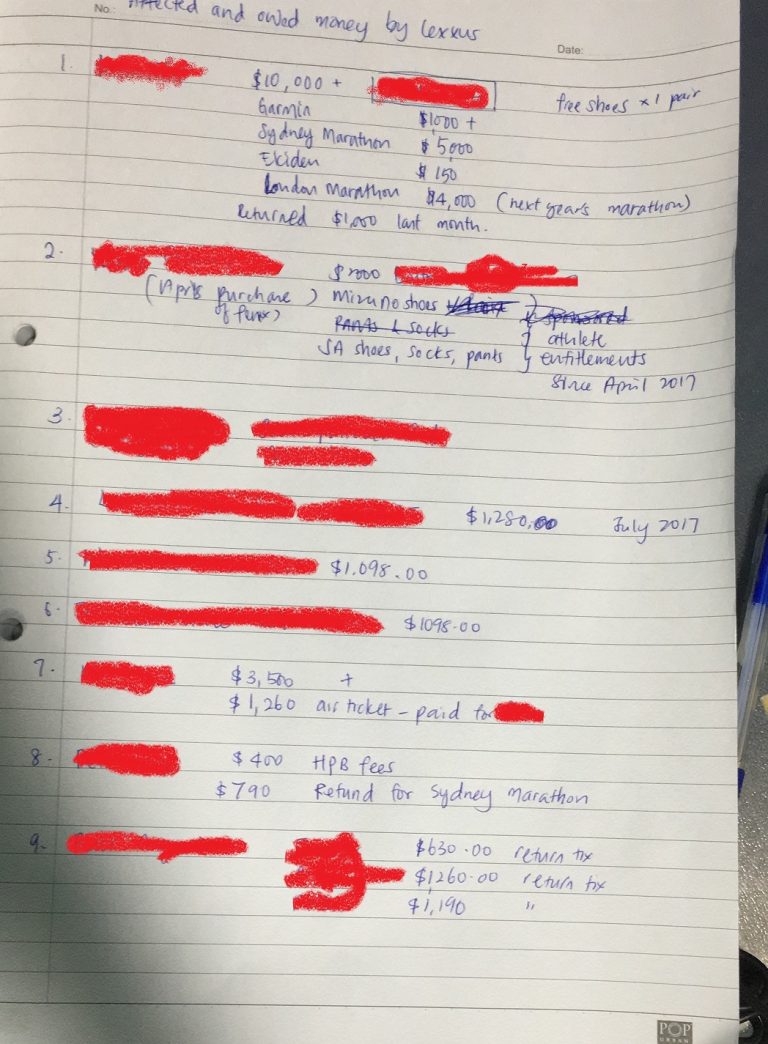 No.: Affected and owed money by lexxus
Date:
1. $10,000 + free shoes x 1 pair
Garmin $1000 +
Sydney Marathon $5,000
Ekiden $150
London Marathon $4,000 (next year's marathon)
Returned $1,000 last month.
2. $2000
( purchase ) Mizuno shoes
of
Pants & socks sponsored
athlete
SA shoes, socks, pants entitlements
since April 2017
3.
4. $1,280.00 July 2017
5. $1.098.00
6. $1098.00
7. $3,500 +
$1,260 air ticket - paid for
8. $400 HPB fees
$790 Refund for Sydney Marathon
9. $630.00 return tix
$1260.00 return tix
$1,190 "
POP
URBAN